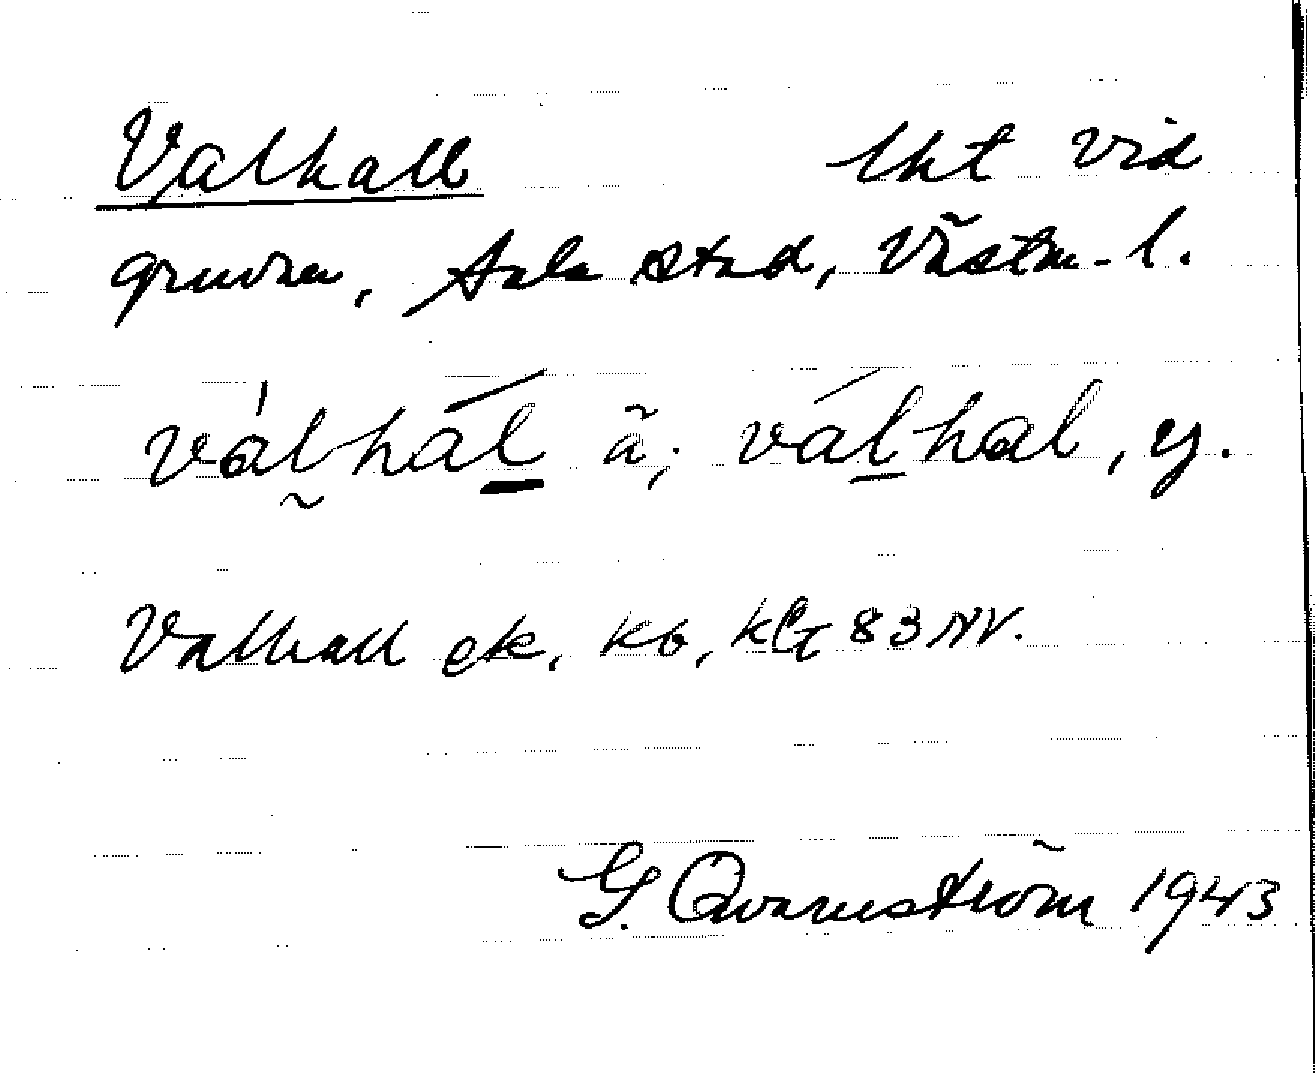 Valhall lht vid
gruvan, Sala stad, Västm. l.
válhál ä; válhal, y.
Valhall ek, kb, 83 NV.
G. Qvarnström 1943